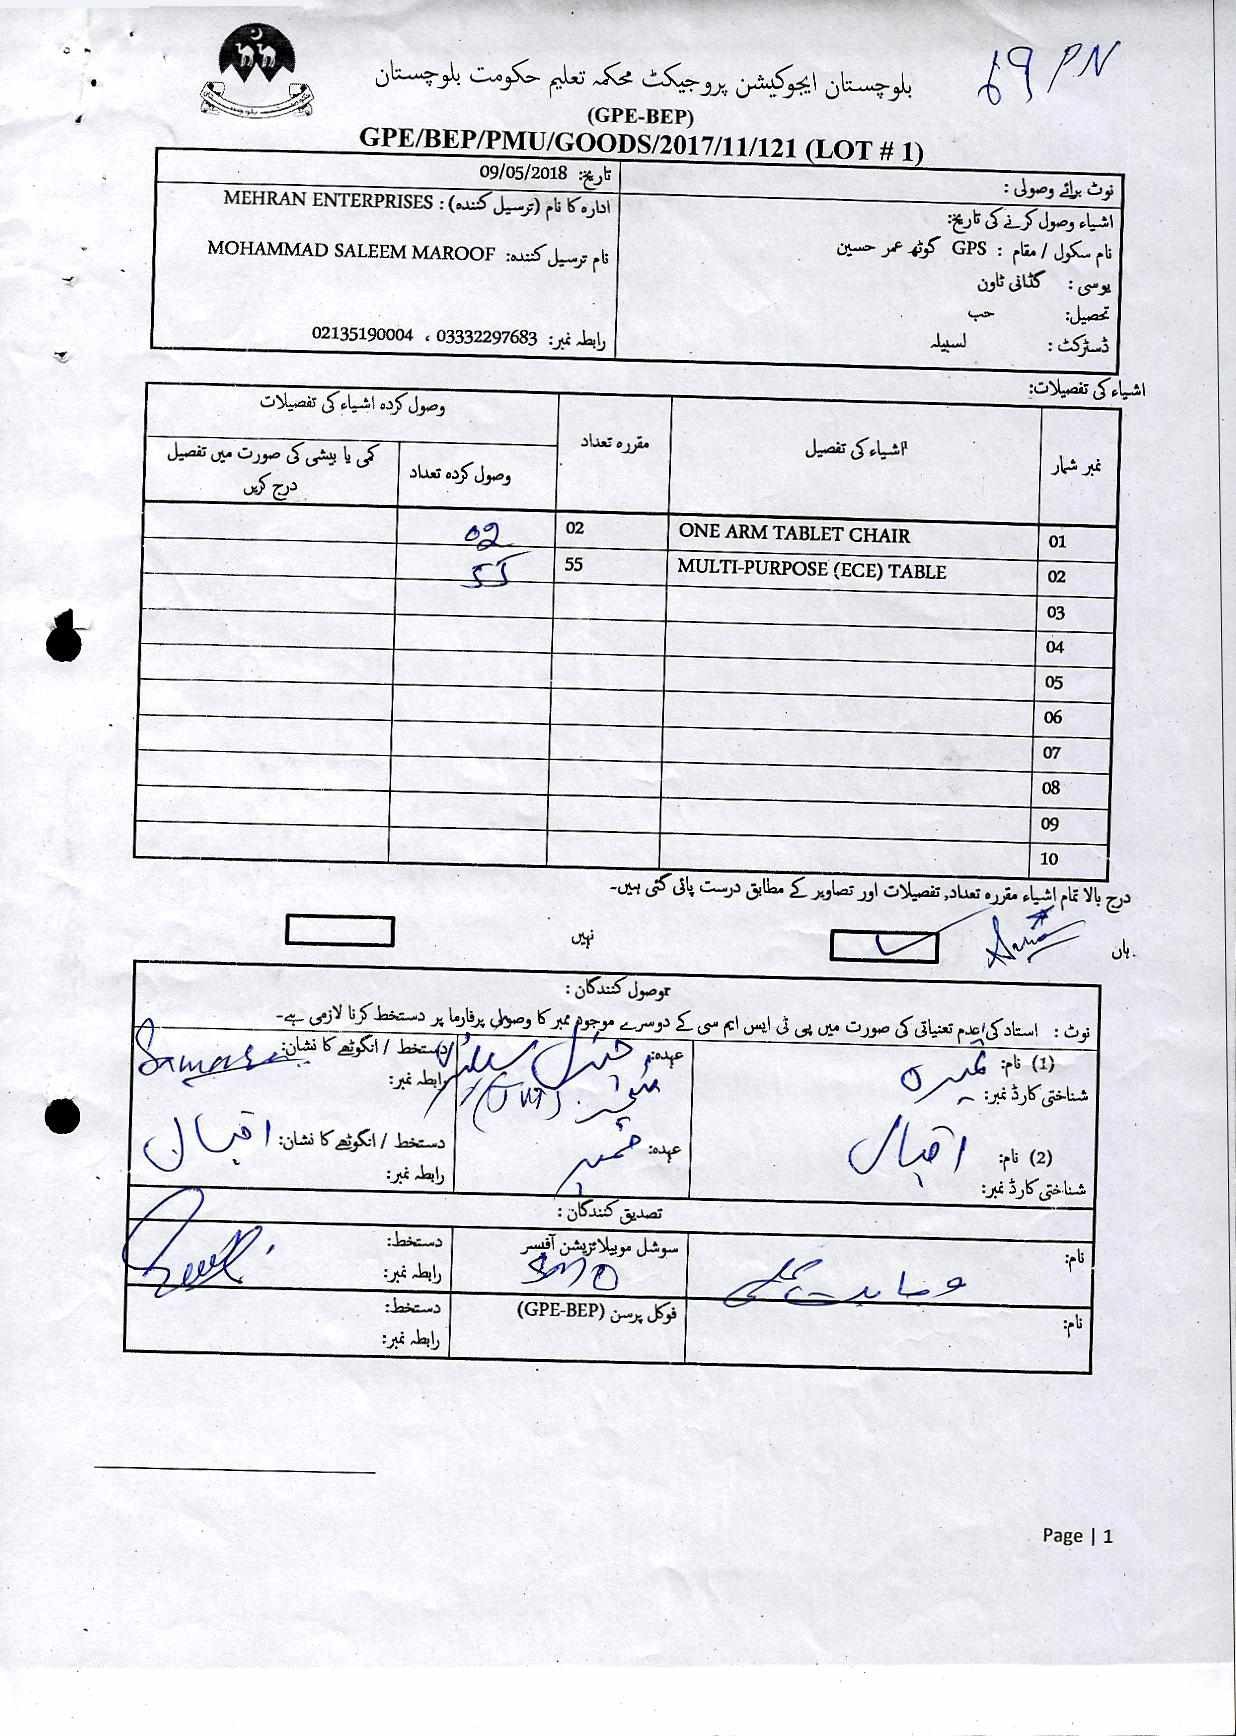 69 PN
بلوچستان ایجوکیشن پروجیکٹ محکمہ تعلیم حکومت بلوچستان
(GPE-BEP)
GPE/BEP/PMU/GOODS/2017/11/121 (LOT # 1)
نوٹ برائے وصولی :
اشیاء وصول کرنے کی تاریخ:
نام سکول / مقام : GPS گوٹھ عمر حسین
یوسی : گڈانی ٹاون
تحصیل: حب
ڈسٹرکٹ : لسبیلہ
تاریخ: 09/05/2018
ادارہ کا نام (ترسیل کنندہ) : MEHRAN ENTERPRISES
نام ترسیل کنندہ: MOHAMMAD SALEEM MAROOF
رابطہ نمبر: 03332297683 ، 02135190004
اشیاء کی تفصیلات:
نمبر شمار اشیاء کی تفصیل مقررہ تعداد وصول کردہ اشیاء کی تفصیلات
وصول کردہ تعداد کمی یا بیشی کی صورت میں تفصیل درج کریں
01 ONE ARM TABLET CHAIR 02 02
02 MULTI-PURPOSE (ECE) TABLE 55 55
03
04
05
06
07
08
09
10
درج بالا تمام اشیاء مقررہ تعداد, تفصیلات اور تصاویر کے مطابق درست پائی گئی ہیں۔
ہاں نہیں
وصول کنندگان :
نوٹ : استاد کی عدم تعنیاتی کی صورت میں پی ٹی ایس ایم سی کے دوسرے موجود ممبر کا وصولی پرفارما پر دستخط کرنا لازمی ہے۔
(1) نام: عہدہ: دستخط / انگوٹھے کا نشان:
شناختی کارڈ نمبر: (JVT) رابطہ نمبر:
(2) نام: اقبال عہدہ: ممبر دستخط / انگوٹھے کا نشان: اقبال
شناختی کارڈ نمبر: رابطہ نمبر:
تصدیق کنندگان :
نام: سوشل موبیلائزیشن آفیسر دستخط:
SMO رابطہ نمبر:
نام: فوکل پرسن (GPE-BEP) دستخط:
رابطہ نمبر:
Page | 1